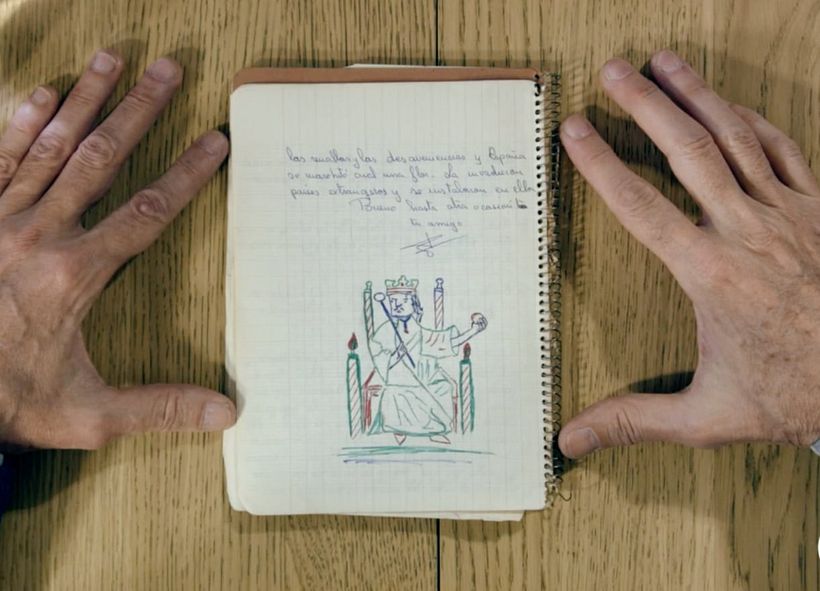 las murallas y las desavenencias y España
se marchitó cual una flor. La invadieron
paises extrangeros y se instalaron en ella
Bueno hasta otra ocasión
tu amigo